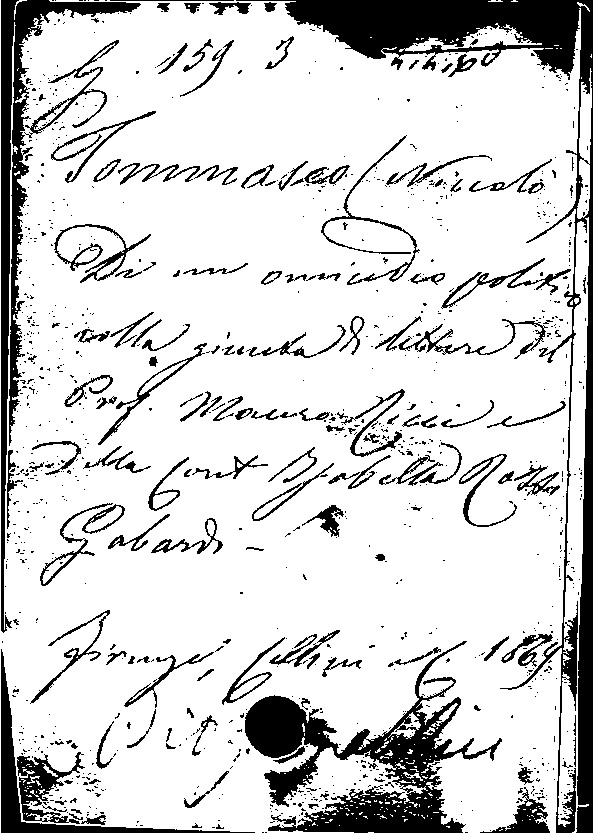 G. 159. 3
Tommaseo (Niccolò)
Di un omicidio politico
colla giunta di lettere del
Prof. Mauro Ricci e
della Cont Isabella Rossi
Gabardi -
Firenze, Cellini e C. 1869